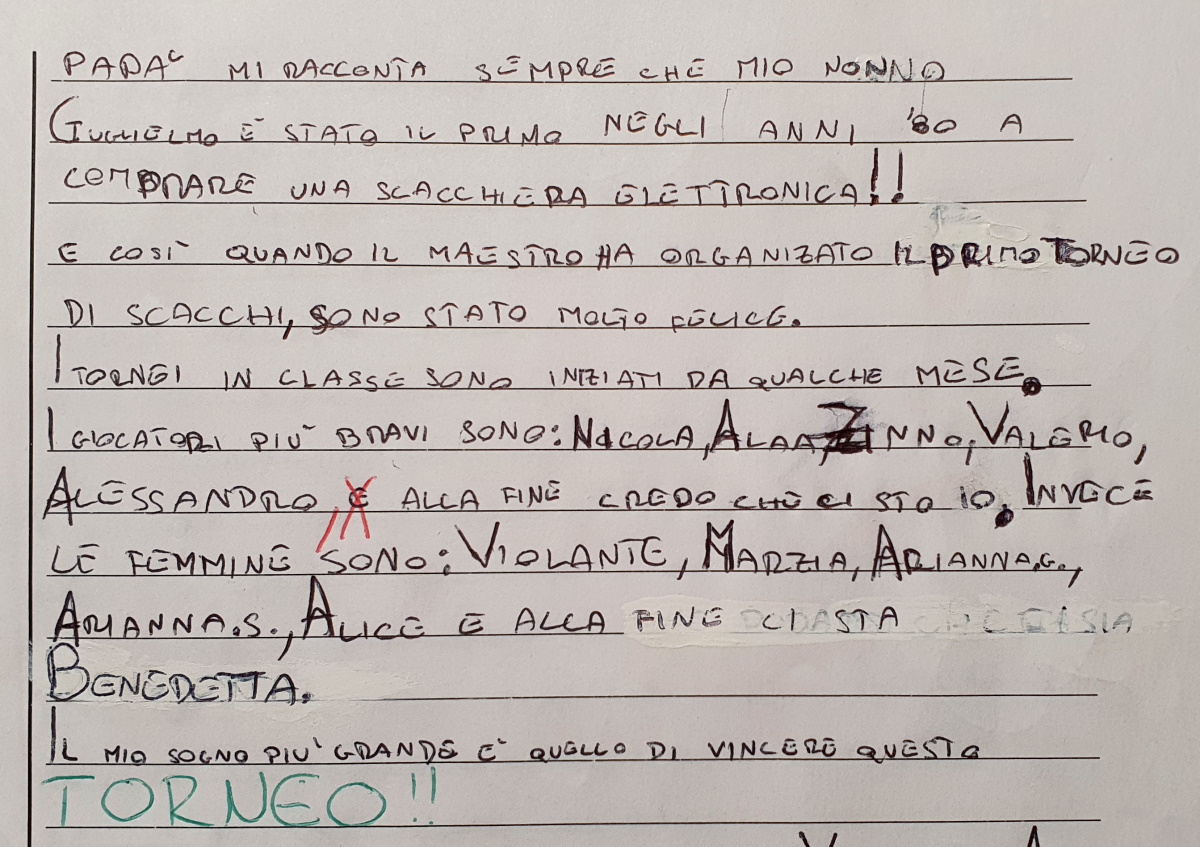 PAPA' MI RACCONTA SEMPRE CHE MIO NONNO
GUGLIELMO E' STATO IL PRIMO NEGLI ANNI '80 A
COMPRARE UNA SCACCHIERA ELETTRONICA!!
E COSI' QUANDO IL MAESTRO HA ORGANIZATO IL PRIMO TORNEO
DI SCACCHI, SONO STATO MOLTO FELICE.
I TORNEI IN CLASSE SONO INIZIATI DA QUALCHE MESE.
I GIOCATORI PIU' BRAVI SONO: NICOLA, ALAA, ZINNO, VALERIO,
ALESSANDRO, E ALLA FINE CREDO CHE CI STO IO. INVECE
LE FEMMINE SONO: VIOLANTE, MARZIA, ARIANNA.G.,
ARIANNA.S., ALICE E ALLA FINE CI STA
BENEDETTA.
IL MIO SOGNO PIU' GRANDE E' QUELLO DI VINCERE QUESTO
TORNEO!!